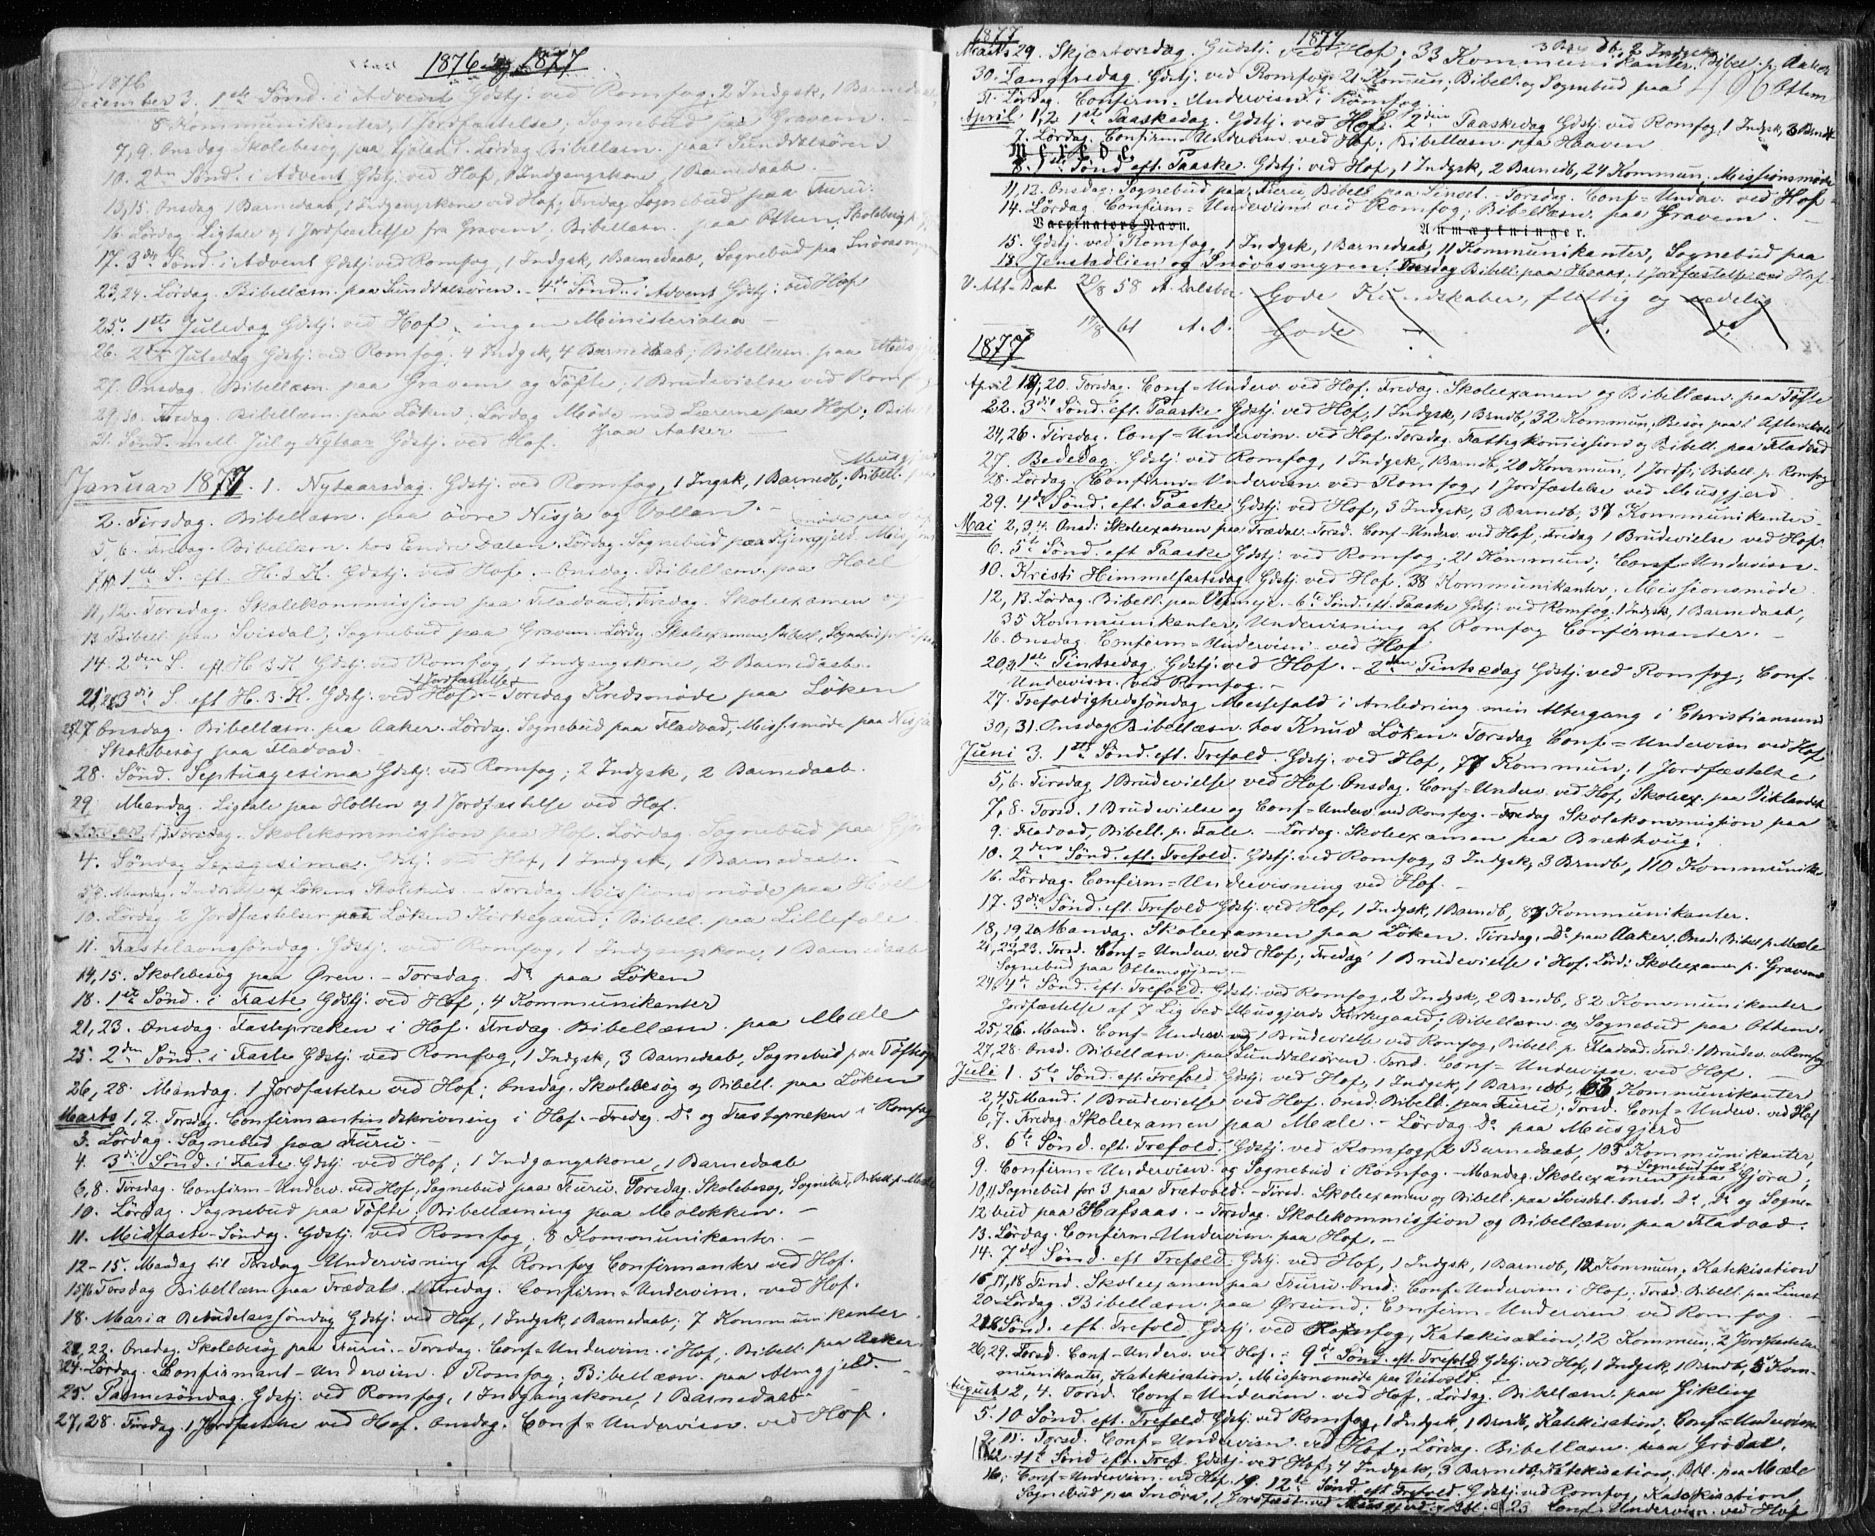 1876 og 1877
1876
December 3. 1ste Sønd. i Advent Gdstj. ved Romfog, 2 Indgsk, 1 Barnedaab
8 Kommunikanter, 1 Jordfæstelse. Sognebud paa Gravem.
7, 9. Onsdag Skolebesøg paa Hoaas. Lördag Bibellæsn. paa Sunddalsören
10. 2den Sønd. i Advent Gdstj. ved Hof, Indgangskone, 1 Barnedaab.
13, 15. Onsdag 1 Barnedaab, 1 Indgangskone ved Hof; Fredag Sognebud paa Furu.
16. Lördag Ligtale og 1 Jordfæstelse fra Gravem; Bibellæsn. paa Ottem. Skolebesøg p.
17. 3die Sönd. i Advent Gdstj. ved Romfog, 1 Indgsk, 1 Barnedaab, Sognebud paa Snövasmyren
23, 24. Lördag. Bibellæsn. paa Sunddalsören. - 4de Sönd. i Advent Gdstj. ved Hof
25. 1ste Juledag Gdstj. ved Hof, ingen Ministerialia -
26. 2den Juledag Gdstj. ved Romfog. 4 Indgsk, 4 Barnedaab; Bibellæsn. paa Musgj
27. Onsdag. Bibellæsn. paa Gravem og Töfte; 1 Brudevielse ved Romfog
29, 30. Fredag Bibellæsn. paa Löken. Lördag Möde med Lærerne paa Hof; Bibel
paa Aaker -
31. Sönd. mell. Jul og Nytaar Gdstj. ved Hof.
Januar 1877. 1. Nytaarsdag. Gdstj. ved Romfog, 1 Ingsk, 1 Barnedb, Bibell. paa Musgjerd
2. Tirsdag. Bibellæsn. paa övre Nisja og Vollan. -
5, 6. Fredag. Bibellæsn. hos Endre Dalen. Lördag. Sognebud paa
7, 10. 1ste S. eft. H. 3 K. Gdstj. ved Hof. - Onsdag. Bibellæsn. paa Hoel
11, 12. Torsdag. Skolekommission paa Fladvad, Fredag. Skoleexamen og
13 Bibell. paa Svisdal; Sognebud paa Gravem. Lördg. Skoleexamen, Bibell, Sognebud
14. 2den S. eft. H. 3 K. Gdstj. ved Romfog, 1 Indgangskone, 2 Barnedaab.
1 Jordfæstelse
21, 3die S. eft. H. 3. K. Gdstj. ved Hof. - Torsdag Kredsmöde paa Löken
27 Onsdag. Bibellæsn. paa Aaker. Lördag. Sognebud paa Fladvad, Miss.möde paa Nisja
Skolebesög paa Fladvad.
28. Sönd. Septuagesima Gdstj. ved Romfog; 2 Indgsk, 2 Barnedaab.
29. Mandag. Ligtale paa Holten og 1 Jordfæstelse ved Hof.
Februar 1, Torsdag. Skolekommission paa Hof. Lördag. Sognebud paa
4. Söndag Sexagesima. Gdstj. ved Hof, 1 Indgsk, 1 Barnedaab. -
5, 8. Mandag. Indvielse af Lökens Skolehus. - Torsdag Missionsmöde paa Hoel
10. Lördag. 2 Jordfæstelser ved Löken Kirkegaard; Bibell. paa Lillefale.
11. Fastelavnssöndag Gdstj. ved Romfog, 1 Indgangskone, 1 Barnedaab
14, 15. Skolebesög paa Øren. - Torsdag. Do paa Löken
18. 1ste Sönd. i Faste, Gdstj. ved Hof; 4 Kommunikanter
21, 23. Onsdag. Fastepræken i Hof. Fredag. Bibellæsn. paa Mæle
25. 2den Sönd. i Faste Gdstj. ved Romfog, 1 Indgsk, 3 Barnedaab, Sognebud paa
26, 28. Mandag. 1 Jordfæstelse ved Hof; Onsdag. Skolebesög og Bibell. paa Löken
Marts 1, 2. Torsdg. Confirmantindskrivning i Hof. - Fredag. Do og Fastepræken i Romfog
3. Lördag. Sognebud paa Furu. -
4. 3die Sönd. i Faste Gdstj. ved Hof; 1 Indgangskone, 1 Barnedaab
6, 8. Tirsdag. Confirm-Underv. ved Hof, Sognebud paa Furu. Torsdag. Skolebesög, Sognebud, Bibell. p. Mæle
10. Lördag. Sognebud paa Töfte; Bibellæsning paa Molökken. -
11. Midfaste-Söndag. Gdstj. ved Romfog, 8 Kommunikanter. -
12-15. Mandag til Torsdag Undervisning af Romfog Confirmanter ved Hof.
15, 16 Torsdag Bibellæsn. paa Trædal. Fredag. Confirm-Undervisn. ved Hof.
18. Maria Bebudelsessöndag Gdstj. ved Hof, 1 Indgsk, 1 Barnedaab; 7 Kommunikanter.
21, 22. Onsdag. Skolebesög paa Furu. - Torsdag. Conf-Undervisn. i Hof; Bibell. paa Aaker.
24. Lördag. Confirmant-Undervisn. i Romfog; Bibellæsn. paa Almgjeld. -
25. Palmesöndag. Gdstj. ved Romfog, 1 Indgangskone, 1 Barnedaab -
27, 28. Tirsdag. 1 Jordfæstelse ved Hof. Onsdag. Conf-Undervisn. ved Hof.
1877 1877
Marts 29. Skjærtorsdag. Gudstj. ved Hof; 33 Kommunikanter, Bibell. p. Aaker
30. Langfredag. Gdstj. ved Romfog, 21 Kommun; Bibell. og Sognebud paa Ottem
31. Lördag. Confirm-Undervisn. i Romfog.
April 1, 2. 1ste Paaskedag. Gdstj. ved Hof. 2den Paaskedag Gdstj. ved Romfog, 1 Indgsk, 3 Barndb
7. Lördag. Confirm-Undervisn. ved Hof. Bibellæsn. paa Haaven
8. 1ste Sönd eft. Paaske. Gdstj. ved Hof, 1 Indgsk, 2 Barnedb, 24 Kommun, Missionsmöde
11, 12. Onsdag. Sognebud paa Furu. Bibell. paa Linset. - Torsdag. Conf-Underv. ved Hof -
14. Lördag. Confirm-Undervisn. ved Romfog; Bibellæsn. paa Gravem. -
Vaccinators Navn. Anmærkninger.
15. Gdstj. ved Romfog, 1 Indgsk, 1 Barnedaab, 11 Kommunikanter, Sognebud paa
18. Jenstadlien og Snövasmyren. Onsdag Bibell. paa Hoaas, 1 Jordfæstelse ved Hof -
V. Att. Dat 20/8 58 A. Dalsbø Gode Kundskaber, flittig og sædelig
17/8 61 A. D. Gode - do do
1877
April 19, 20. Torsdag. Conf-Underv. ved Hof. Fredag. Skoleexamen og Bibellæsn. paa Töfte
22. 3die Sönd. eft. Paaske Gdstj. ved Hof, 1 Indgsk, 1 Barndb, 32 Kommun, Besøg paa Aftenskole
24, 26. Tirsdag. Conf-Undervisn. ved Hof. Torsdag. Fattigkommission og Bibell. paa Fladvad
27. Bededag. Gdstj. ved Romfog, 1 Indgsk, 1 Barndb, 20 Kommun, 1 Jordf; Bibell. p. Romfog
28. Lördag. Confirm-Undervisn. ved Romfog, 1 Jordfæstelse ved Musgjerd.
29. 4de Sönd. eft. Paaske Gdstj. ved Hof, 5 Indgsk, 3 Barnedb, 37 Kommunikanter -
Mai 2, 3, 4. Onsd. Skoleexamen paa Trædal. Torsd. Conf-Underv. ved Hof, Fredag 1 Brudevielse ved Hof.
6. 5te Sönd. eft Paaske Gdstj. ved Romfog; 21 Kommun; Conf-Undervisn.
10. Kristi Himmelfartsdag. Gdstj. ved Hof. 38 Kommunikanter; Missionsmöde.
12, 13. Lördag. Bibell. paa - 6te Sönd. eft. Paaske Gdstj. ved Romfog, 1 Indgsk, 1 Barnedaab,
35 Kommunikanter; Undervisning af Romfog Confirmanter. -
16. Onsdag. Confirm-Undervisn. ved Hof
20, 21. 1ste Pintsedag. Gdstj. ved Hof. - 2den Pintsedag Gdstj. ved Romfog; Conf-
Undervisn. ved Romfog. -
27. Trefoldighedssöndag Messefald i Anledning min Altergang i Christiansund
30, 31. Onsdag Bibellæsn. hos Knud Löken. Torsdag Conf-Undervisn ved Hof
Juni 3. 1ste Sönd. eft. Trefold. Gdstj. ved Hof, 77 Kommun; 1 Jordfæstelse
5, 6. Tirsdag. 1 Brudevielse ved Hof. Onsdag. Conf-Underv. ved Hof, Skoleex. paa Viklandet
7, 8. Torsd. 1 Brudevielse og Conf-Underv. ved Romfog. Fredag Skolekommission paa
9. Fladvad, Bibell. p. Fale. - Lördag. Skoleexamen paa Brækhaug.
10. 2den Sönd. eft. Trefold. Gdstj. ved Romfog, 3 Indgsk, 3 Brndb, 110 Kommunik
16. Lördag. Confirm-Undervisning ved Hof. -
17. 3die Sönd. eft. Trefold Gdstj. ved Hof, 1 Indgsk, 1 Barndb, 87 Kommunikanter.
18, 19, 20. Mandag. Skoleexamen paa Löken. Tirsdag. Do paa Aaker. Onsd. Bibel p. Mæle
21, 22, 23. Torsd. Conf-Underv. ved Hof; Fredag 1 Brudevielse i Hof. Lörd. Skoleexamen p. Gravem
Sognebud paa
24. 4de Sönd. eft. Trefold. Gdstj. ved Romfog, 2 Indgsk, 2 Barndb, 82 Kommunikanter
Jordfæstelse af 7 Lig ved Musgjerds Kirkegaard; Bibellæsn. og Sognebud paa Ottem.
25, 26. Mand. Conf-Underv. og 1 Brudevielse ved Romfog, Bibell. p. Fladvad. Tirsd. 1 Brudev. v. Romfog
27, 28. Onsd. Bibellæsn. paa Sunddalsören. Torsd. Conf-Undervisn. ved Hof.
Juli 1. 5te Sönd. eft. Trefold Gdstj. ved Hof, 1 Indgsk, 1 Barnedb, 63 Kommunikanter
2, 4, 5 Mand. 1 Brudevielse ved Hof. Onsd. Bibell. paa Furu; Torsd. Conf-Underv. ved Hof
6, 7. Fredag. Skoleexamen paa Mæle. - Lördag Do paa Musgjerd
8. 6te Sönd. eft. Trefold. Gdstj. ved Romfog, 2 Barnedaab, 103 Kommunikanter,
og Sognebud for 2
9. Confirm-Undervisn. og Sognebud i Romfog. - Mandag. Skoleexamen paa Gjöra;
10, 11 Sognebud for 3 paa Trætvold. - Tirsd. Skoleexamen og Bibell. paa Svisdal. Onsd. Do, Do og Sogne-
12 bud paa Hafsaas. - Torsdag. Skolekommission og Bibellæsn. paa Fladvad.
13. Lördag. Confirm-Undervisn. paa Hof. -
14. 7de Sönd. eft. Trefold. Gdstj. ved Hof, 1 Indgsk, 1 Barnedb, 12 Kommun, Katekisation
16, 17, 18 Tirsd. Skoleexamen paa Furu. Onsd. Conf-Undervisn i Hof; Torsd. Bibell. paa Linset
20. Lördag. Bibellæsn. paa Ørsund; Confirm-Undervisn ved Romfog -
Sönd. eft. Trefold Gdstj. ved Romfog, Katekisation, 12 Kommun, 2 Jordfæstelser
26, 29. Torsd. Conf-Underv. ved Hof. - 9de Sönd. eft. Trefold Gdstj. ved Hof, 1 Indgsk, 1 Barndb, 5 Kom-
munikanter, Katekisation. Missionsmöde paa Veitvold. -
August 2, 4. Torsd. Conf-Undervisn. ved Hof. Lördag. Bibellæsn. paa Gikling
5. 10 Sönd. eft. Trefold Gdstj. ved Romfog, 1 Indgsk, 1 Barndb, Katekisation, Conf-Undervisn
9, 11. Torsd. Conf-Undervisn. ved Hof. Lördag. Bibellæsn. paa Grödal.
12. 11te Sönd eft. Tref. Gdstj. ved Hof, 4 Indgsk, 3 Barnedb, Katekisation, Bibl. paa Mæle
16. Conf-Undervisn. ved Hof. 19. 12te Sönd. eft Trefold. Gdstj. ved Romfog, Katekisation,
Sognebud paa Snöva, 1 Jordfæst. ved Musgjerd og Bibl. 23 Conf-Undervisn. ved Hof